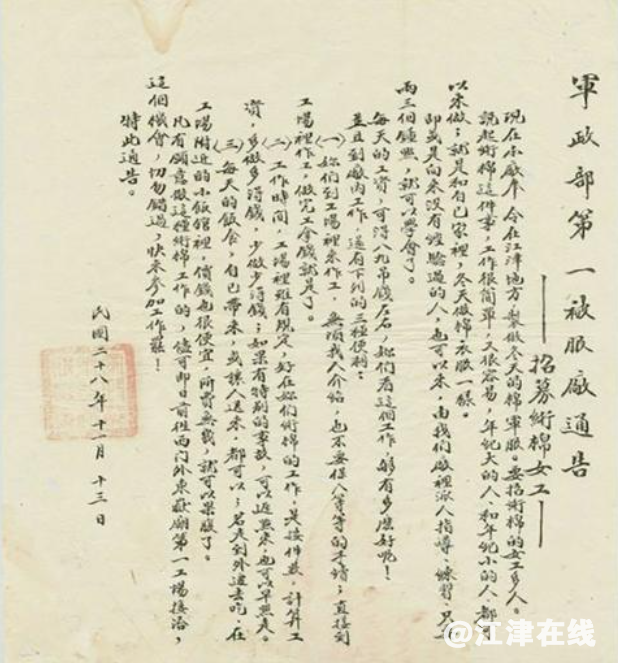 軍政部第一被服廠通告
——招募絎棉女工——
現在本廠奉令在江津地方，製做冬天的棉軍服。要招絎棉的女工多人。
說起絎棉這件事，工作很簡單，又很容易，年紀大的人、和年紀小的人、都可
以來做；就是和自己家裡，冬天做棉衣服一樣。
即或是向來沒有經驗過的人，也可以來，由我們廠裡派人指導、練習，只
兩三個鐘點，就可以學會了。
每天的工資，可得八九吊錢左右，妳們看這個工作，夠有多麽好呢！
並且到廠內工作，還有下列的三種便利：
（一）妳們到工場裡來作工，無須找人介紹，也不要保人等等的手續；直接到
工場裡作工，做完工拿錢就是了。
（二）工作時間，工場裡雖有規定，好在妳們絎棉的工作，是按件數，計算工
資，多做多得錢，少做少得錢；如果有特別的事故，可以遲點來，也可以早點走。
（三）每天的飯食，自己帶來，或讓人送來，都可以；若走到外邊去吃，在
工場附近的小飯館裡，價錢也很便宜，所費無幾，就可以果腹了。
凡有願意做這種絎棉工作的，儘可即日前往西門外東嶽廟第一工場接洽，
這個機會，切勿錯過，快來參加工作罷！
特此通告。
民國二十八年十一月十三日
@江津在线